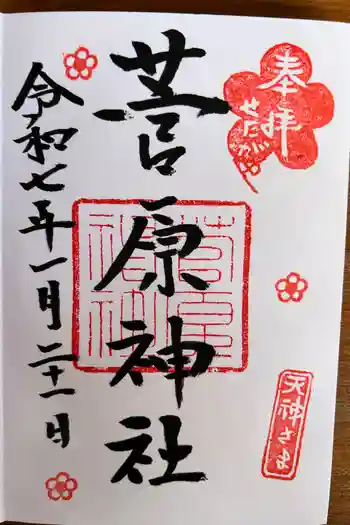 奉拝
せたがや
天神さま
菅原神社
令和七年一月二十一日